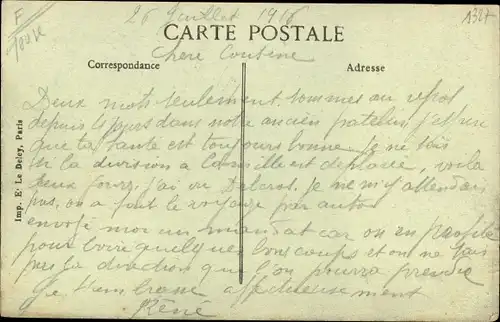 F
26 juillet 1916
CARTE POSTALE
Chere Cousine
Correspondance
Adresse
Deux mots seulement sommes au repos
depuis jours dans notre ancien patelin j'espere
que ta sante est toujours bonne je ne sais
si la division a Camille est deplacée, voila
deux jours j'ai vu je ne m'y attendais
pas, on a fait le voyage par autos
envoie moi un mandat car on en profite
pour boire quelques bons coups et on ne sais
pas la direction que l'on pourra prendre
Je t'embrasse affectueusement
Réné
Imp. E. Le Deley, Paris